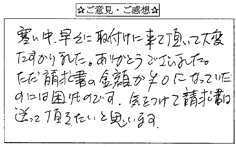 ☆ご意見・ご感想☆
寒い中、早々に取付けに来て頂いて大変
たすかりました。ありがとうございました。
ただ請求書の金額が¥0になっていた
のには困りものです。気をつけて請求書は
送って頂きたいと思います。